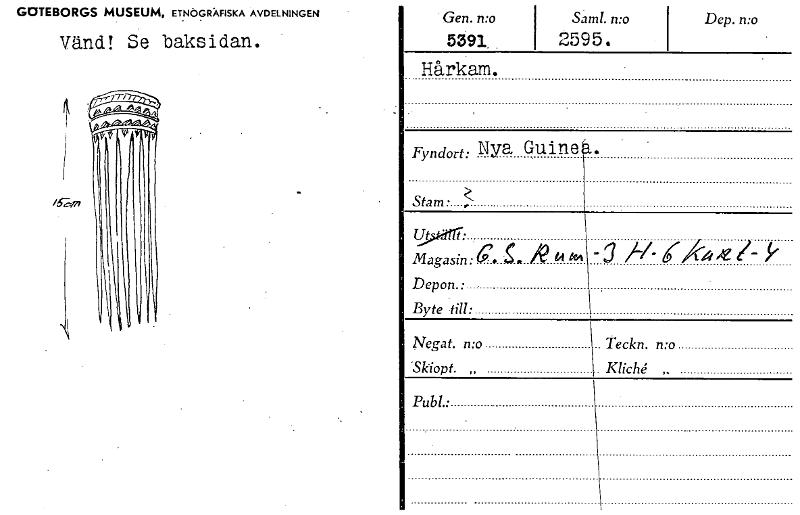 GÖTEBORGS MUSEUM, ETNOGRAFISKA AVDELNINGEN
Vänd! Se baksidan.
15cm
Gen. n:o Saml. n:o Dep. n:o
5391 2595.
Hårkam.
Fyndort: Nya Guinea.
Stam: ?
Utställt:
Magasin: G. S. Rum -3 H-6 Kart-4
Depon.:
Byte till:
Negat. n:o Teckn. n:o
Skiopt. „ Kliché „
Publ.: